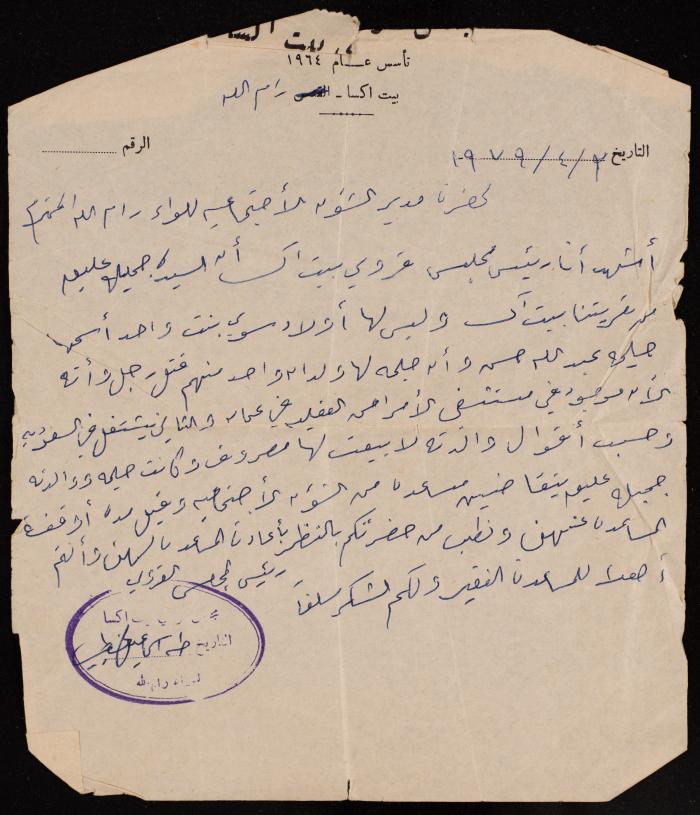 تأسس عــام ١٩٦٤
بيت اكسا - القدس رام الله
التاريخ ٢/٤/١٩٧٩
الرقم
حضرة مدير الشؤون الأجتماعيه للواء رام الله المحترم
أشهد أنا رئيس مجلس قروي بيت اكسا أن السيدة جميله عليوه
من قريتنا بيت اكسا وليس لها أولاد سوى بنت واحد أسمها
حليمه عبد الله حسن وأن حليمه لها ولدان واحد منهم قتل رجل وأنه
الآن موجود في مستشفى الأمراض العقليه في عمان والثاني يشتغل في السعوديه
وحسب أقوال والدته لا يبعت لها مصروف وكانت حليمه ووالدته
جميله عليوه يتقاضين مساعده من الشؤون الأجتماعيه وقبل مده أوقفت
المساعده عنهن ونطلب من حضرتكم بالنظر بأعادت المساعده لهن وأنتم
أهلا للمساعدة الفقير ولكم الشكر سلفا
رئيس المجلس القروي
بيت اكسا
التاريخ
لواء رام الله